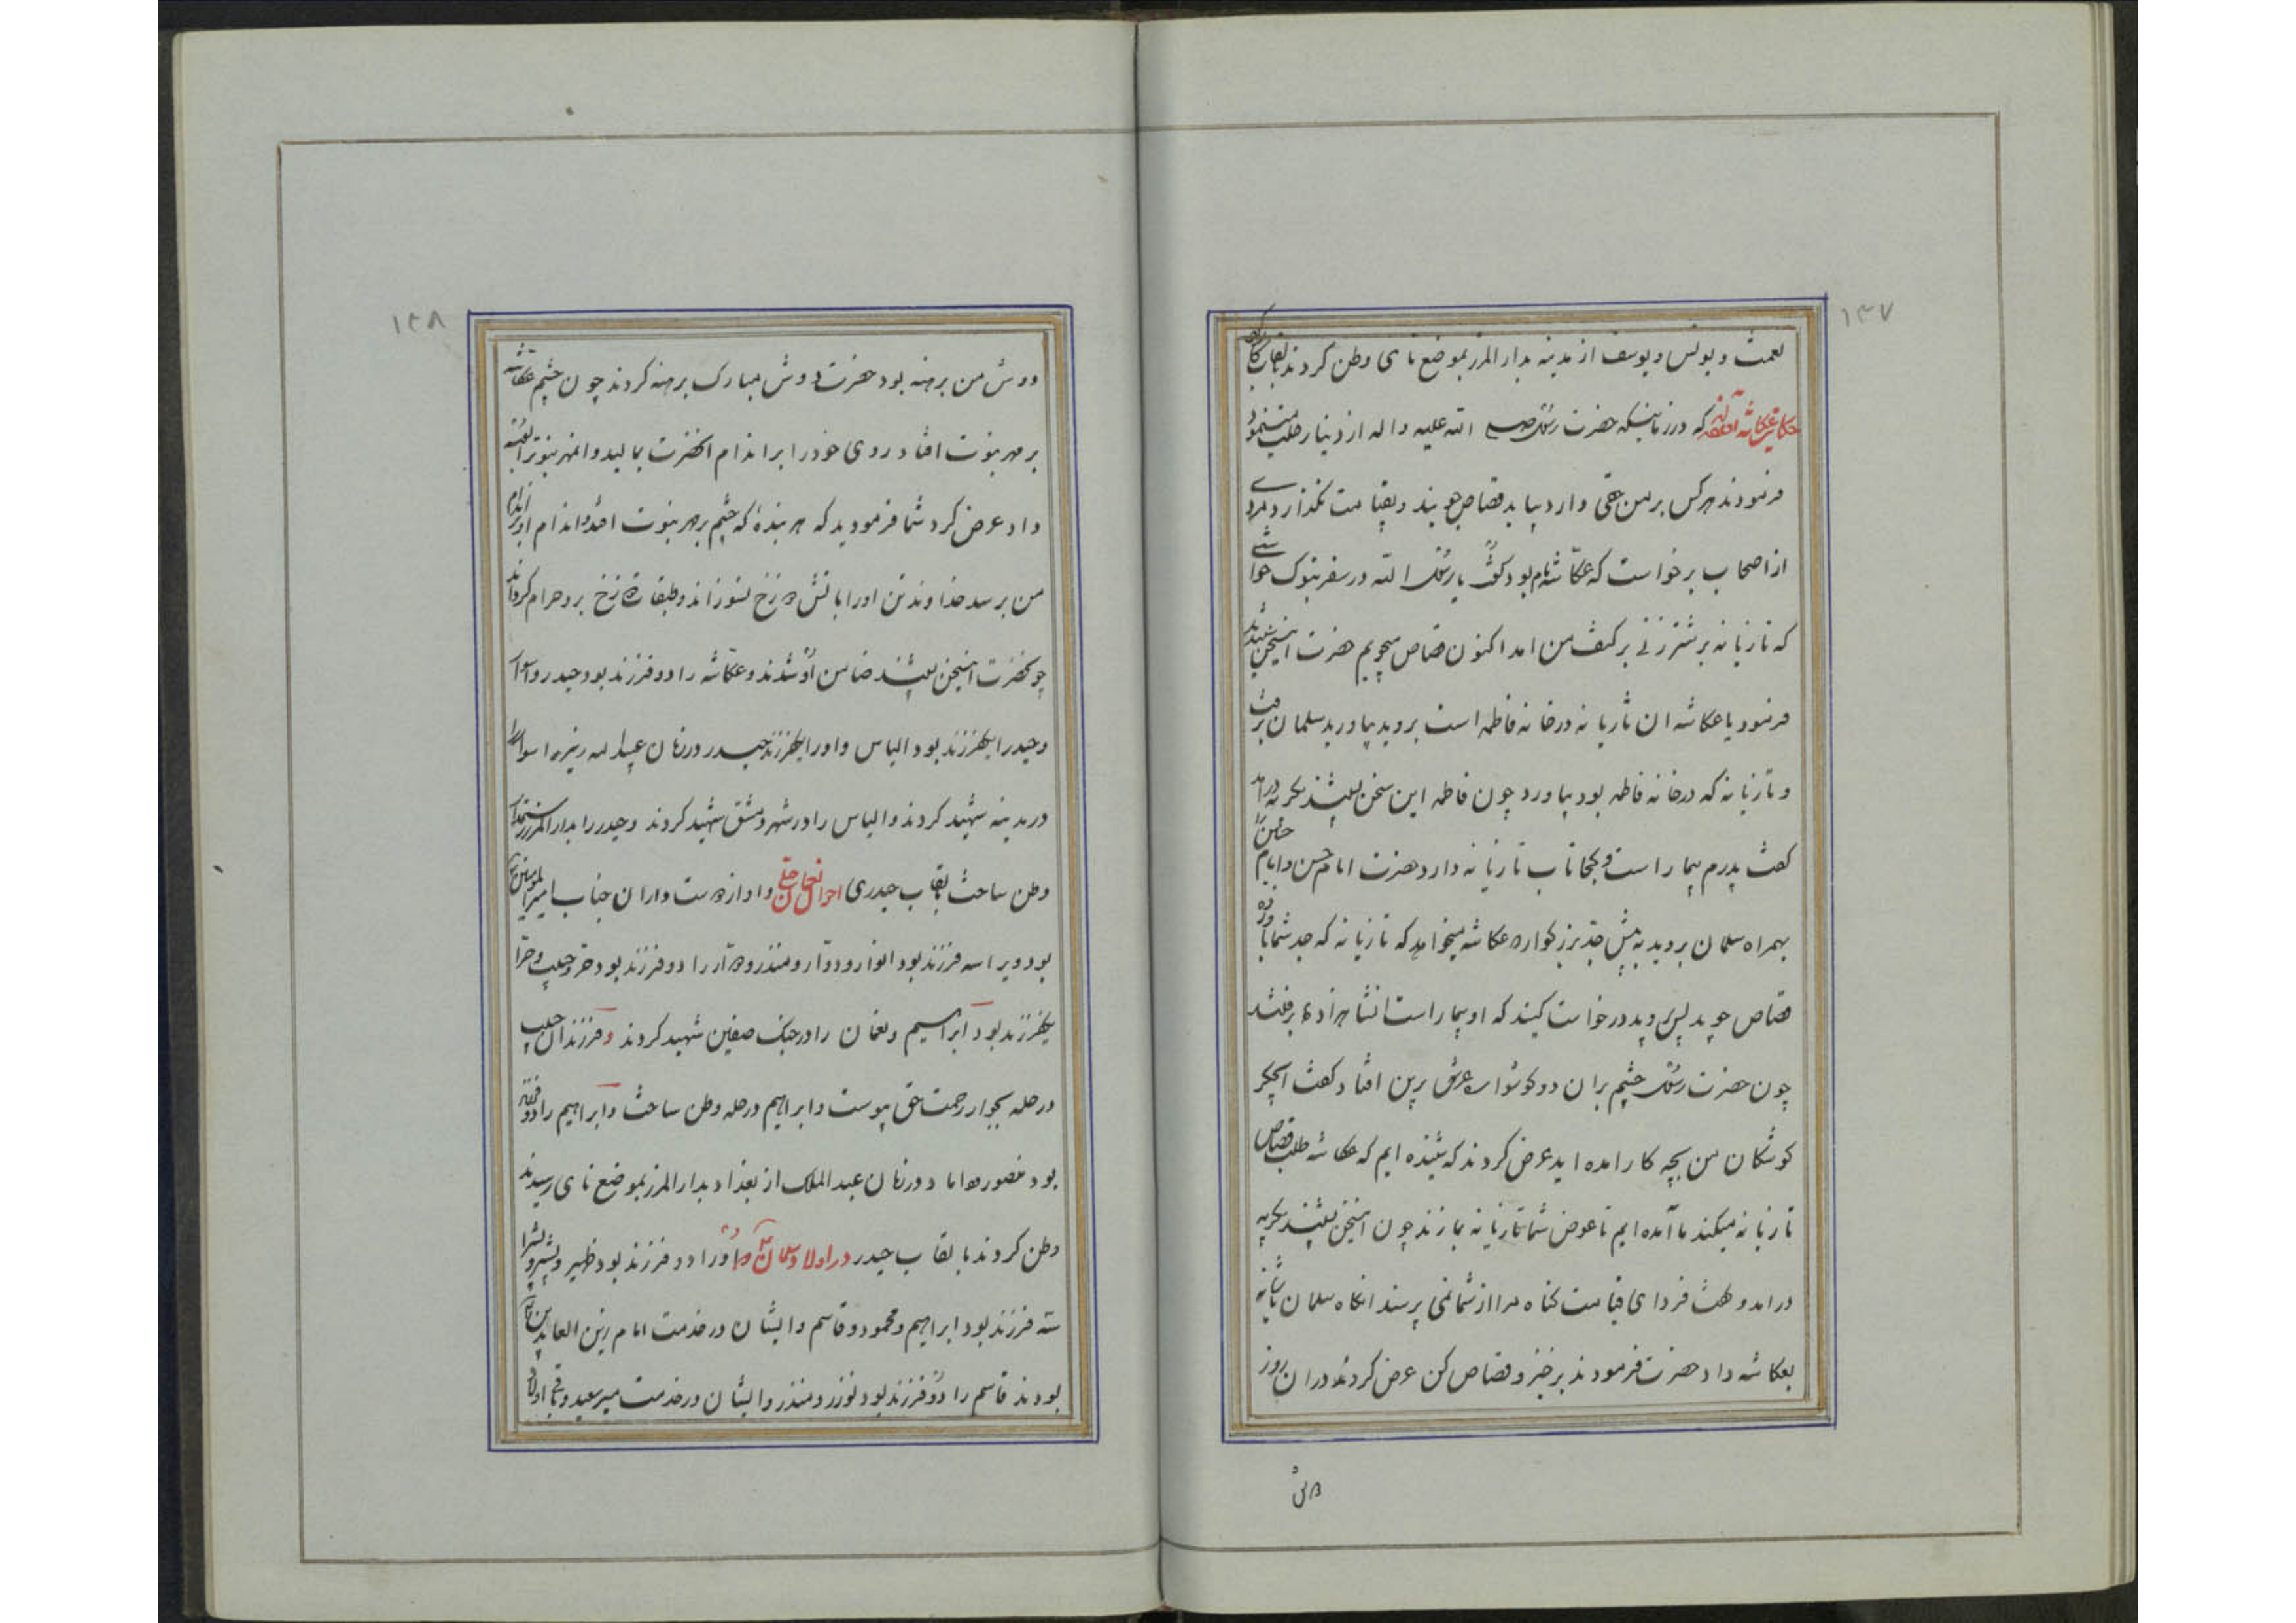 ۱۳۷
نعمت و یونس و یوسف از مدینه بدار المرز بموضع نای وطن کردند بقاب
حکایت عکاشه که در زمانیکه حضرت رسول صلی الله علیه واله از دنیا رحلت مینمود
فرمودند هرکس بر من حقی دارد بیاید قصاص جویند و بقیامت نگذارد مردی
از اصحاب برخواست که عکاشه نام بود گفت یا رسول الله در سفر تبوک خواستی
که تازیانه بر شتر زنی بر کتف من امد اکنون قصاص میجویم حضرت اینسخن شنیدند
فرمود یا عکاشه ان تازیانه در خانه فاطمه است بروید بیاورید سلمان برفت
و تازیانه که در خانه فاطمه بود بیاورد چون فاطمه این سخن بشنید بگریه درامد
گفت پدرم بیمار است و کجا تاب تازیانه دارد حضرت امام حسن و امام حسین را
بهمراه سلمان بروید به پیش جد بزرگوار عکاشه میخواهد که تازیانه که جد شما باو زده
قصاص جوید پس وید درخواست کنید که او بیمار است انشاهزاده برفتند
چون حضرت رسول چشم بران دو گوشواره عرش برین افتاد گفت ایجگر
گوشگان من بچه کار امده اید عرض کردند که شنیده ایم که عکاشه طلب قصاص
تازیانه میکند ما آمده ایم تا عوض شما تازیانه بما زند چون اینسخن بشنید بگریه
درامد و گفت فردای قیامت گناه مرا از شما نمی پرسند انگاه سلمان تازیانه
بعکاشه داد حضرت فرمودند برخیز و قصاص کن عرض کردند دران روز
دوش
۱۳۸
دوش من برهنه بود حضرت دوش مبارک برهنه کردند چون چشم عکاشه
بر مهر نبوت افتاد روی خود را بر اندام انحضرت بمالید و انمهر نبوت را بوسه
داد عرض کرد شما فرمودید که هر بنده که چشم بر مهر نبوت افتد و اندام او بر اندام
من برسد خداوند تن اورا باتش دوزخ نسوزاند و طبقات دوزخ بر و حرام کرداند
چو نحضرت اینسخن بشنید ضامن او شدند و عکاشه را دو فرزند بود حیدر و اسوار
و حیدر را یکفرزند بود الیاس و اورا یکفرزند حیدر در زمان عبدالله زبیر اسوار را
در مدینه شهید کردند و الیاس را در شهر دمشق شهید کردند و حیدر را بدار المرز رستمدار
وطن ساخت بقاب حیدری احوال نعمان حلی و او از دوستداران جناب امیرالمومنین
بود و ویرا سه فرزند بود انوار و دوار و منذر و دوار را دو فرزند بود حر و حبیب و حر را
یکفرزند بود ابراهیم و نعمان را در جنگ صفین شهید کردند و فرزند ان حبیب
در حله بجوار رحمت حق پیوست و ابراهیم در حله وطن ساخت و ابراهیم را دو فرزند
بود منصور اما در زمان عبد الملک از بغداد بدار المرز بموضع نای رسیدند
وطن کردند با بقاب حیدر در اولاد سلمان اورا دو فرزند بود ظهیر و بشیر و بشیر را
سه فرزند بود ابراهیم و محمود و قاسم و ایشان در خدمت امام زین العابدین
بودند قاسم را دو فرزند بود نوزر و منذر و ایشان در خدمت میر سعید